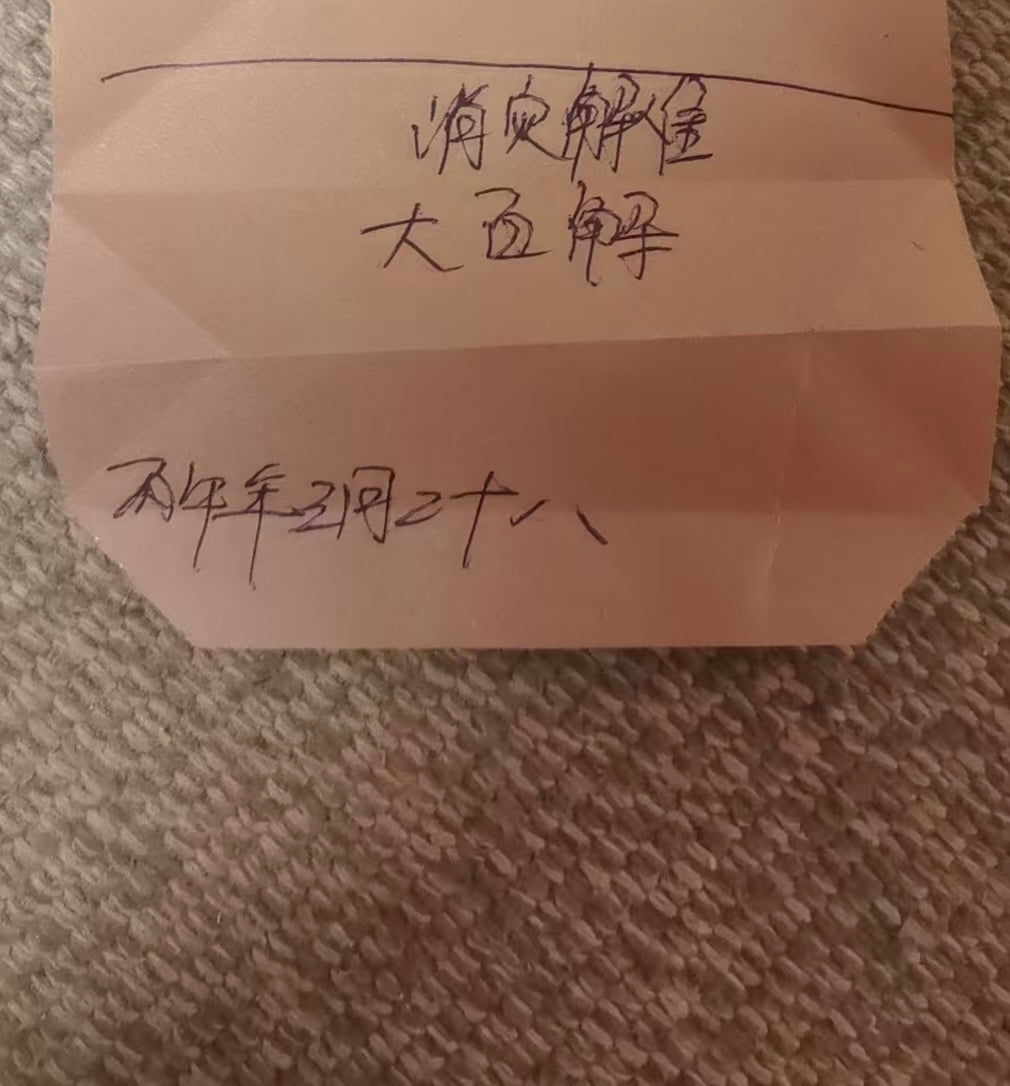 消灾解难
大五解
丙午年三月二十八